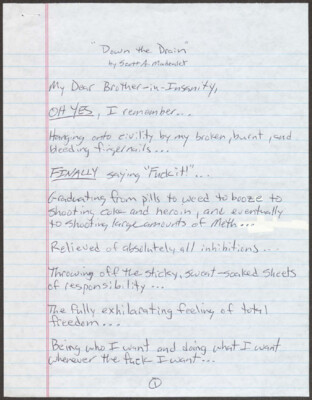 "Down the Drain"
by Scott A.
My Dear Brother-in-Insanity,
OH YES, I remember...
Hanging onto civility by my broken, burnt, and
bleeding fingernails...
FINALLY saying "Fuck it!"...
Graduating from pills to weed to booze to
shooting coke and heroin, and eventually
to shooting large amounts of meth...
Relieved of absolutely all inhibitions...
Throwing off the sticky, sweat-soaked sheets
of responsibility...
The fully exhilarating feeling of total
freedom...
Being who I want and doing what I want
whenever the fuck I want...
1